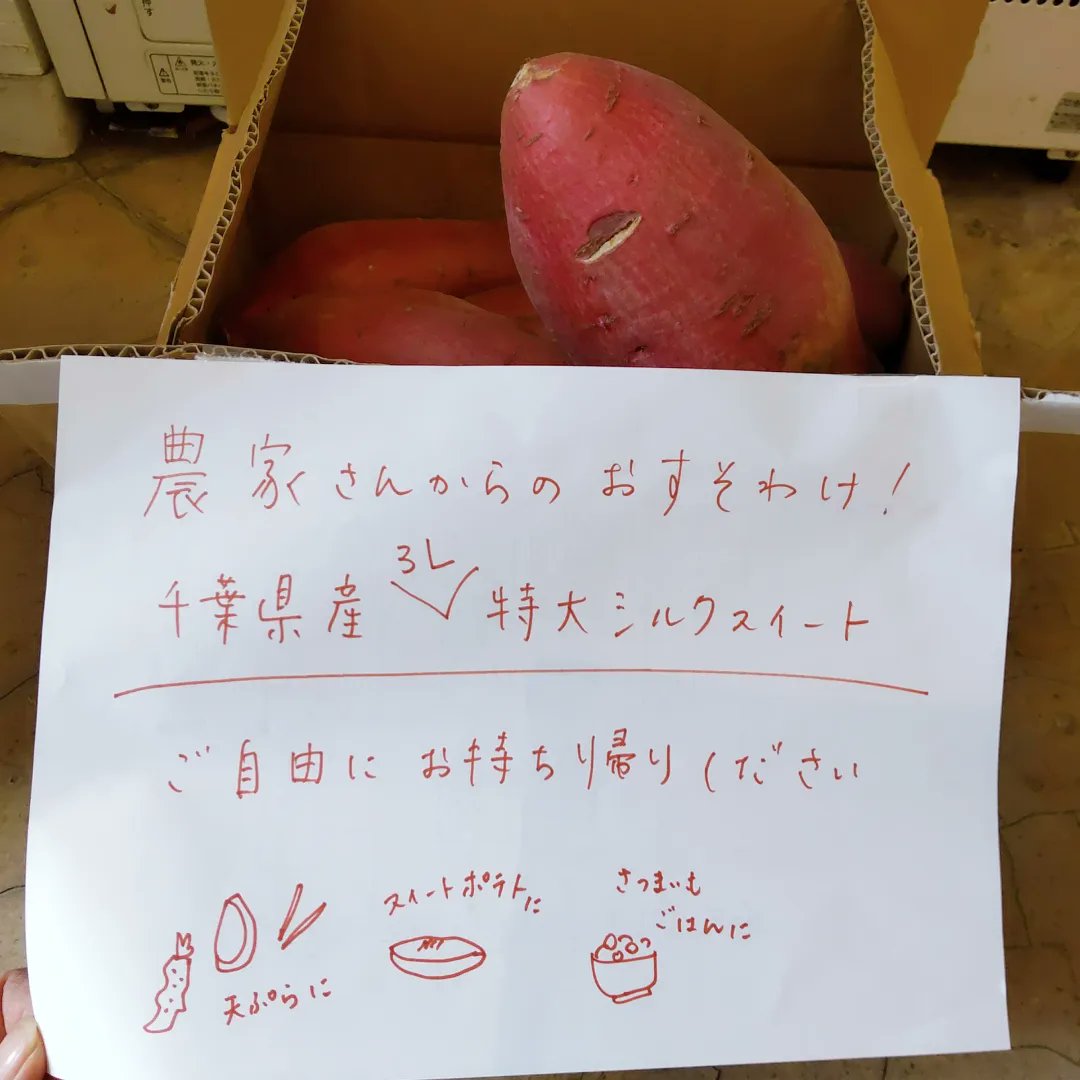 農家さんからのおすそわけ!
千葉県産 3L 特大シルクスイート
ご自由にお持ち帰りください
天ぷらに
スイートポテトに
さつまいも
ごはんに